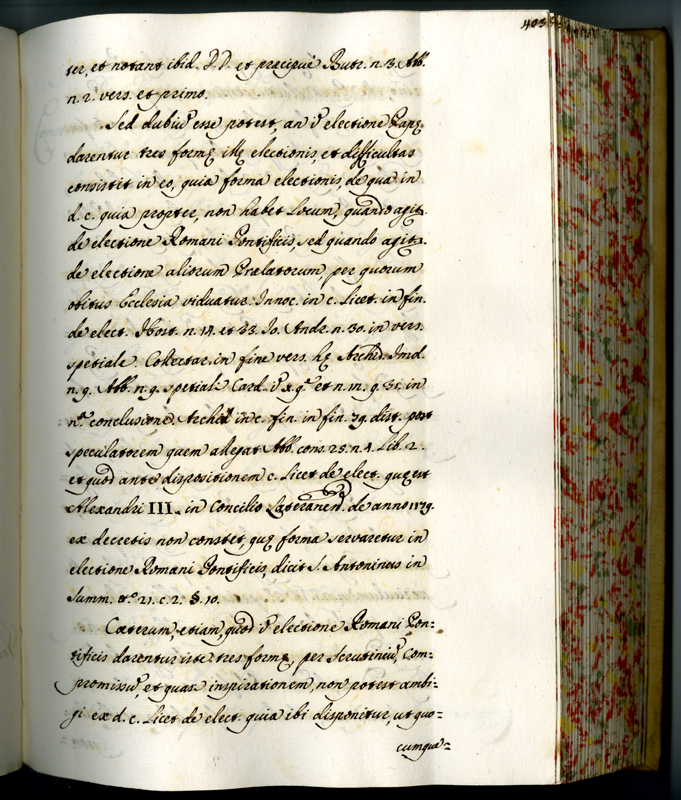 403
ter, et notant ibid. D.D. et precipuè Butr. n. 3. Abb.
n. 2. vers. et primo.
Sed dubiũ esse potest, an ĩ electione Papę
darentur tres formę illę electionis, et difficultas
consistit in eo, quia forma electionis, de qua in
d. c. quia propter, non habet Locum, quando agitr.
de electione Romani Pontificis, sed quando agitr.
de electione aliorum Prælatorum, per quorum
obitus Ecclesia viduatur. Innoc. in c. Licet. in fin.
de elect. Host. n. 14. et 33. Io. Andr. n. 30. in vers.
spetiale. Collectar. in fine vers. hę Archid. Imol.
n. 9. Abb. n. 9. spetiali Card. in n. 9. 31. in
conclusione. Archid. in c. fin. in fin. 79. dist. post
speculatorem quem allegat Abb. cons. 25. n. 1. Lib. 2.
et quod ante dispositionem c. Licet de elect. quę est
Alexandri III. in Concilio Lateranen. de anno 1179.
ex decretis non constet, quę forma servaretur in
electione Romani Pontificis, dicit S. Antoninus in
Summ. tt.º 21. c. 2. §. 10.
Cæterum etiam, quod ĩ electione Romani Pon=
tificis darentur istę tres formę, per Scrutiniũ, Com=
promissũ, et quasi inspirationem, non potest ambi=
gi ex d. c. Licet de elect. quia ibi disponitur, ut quo=
cumque=